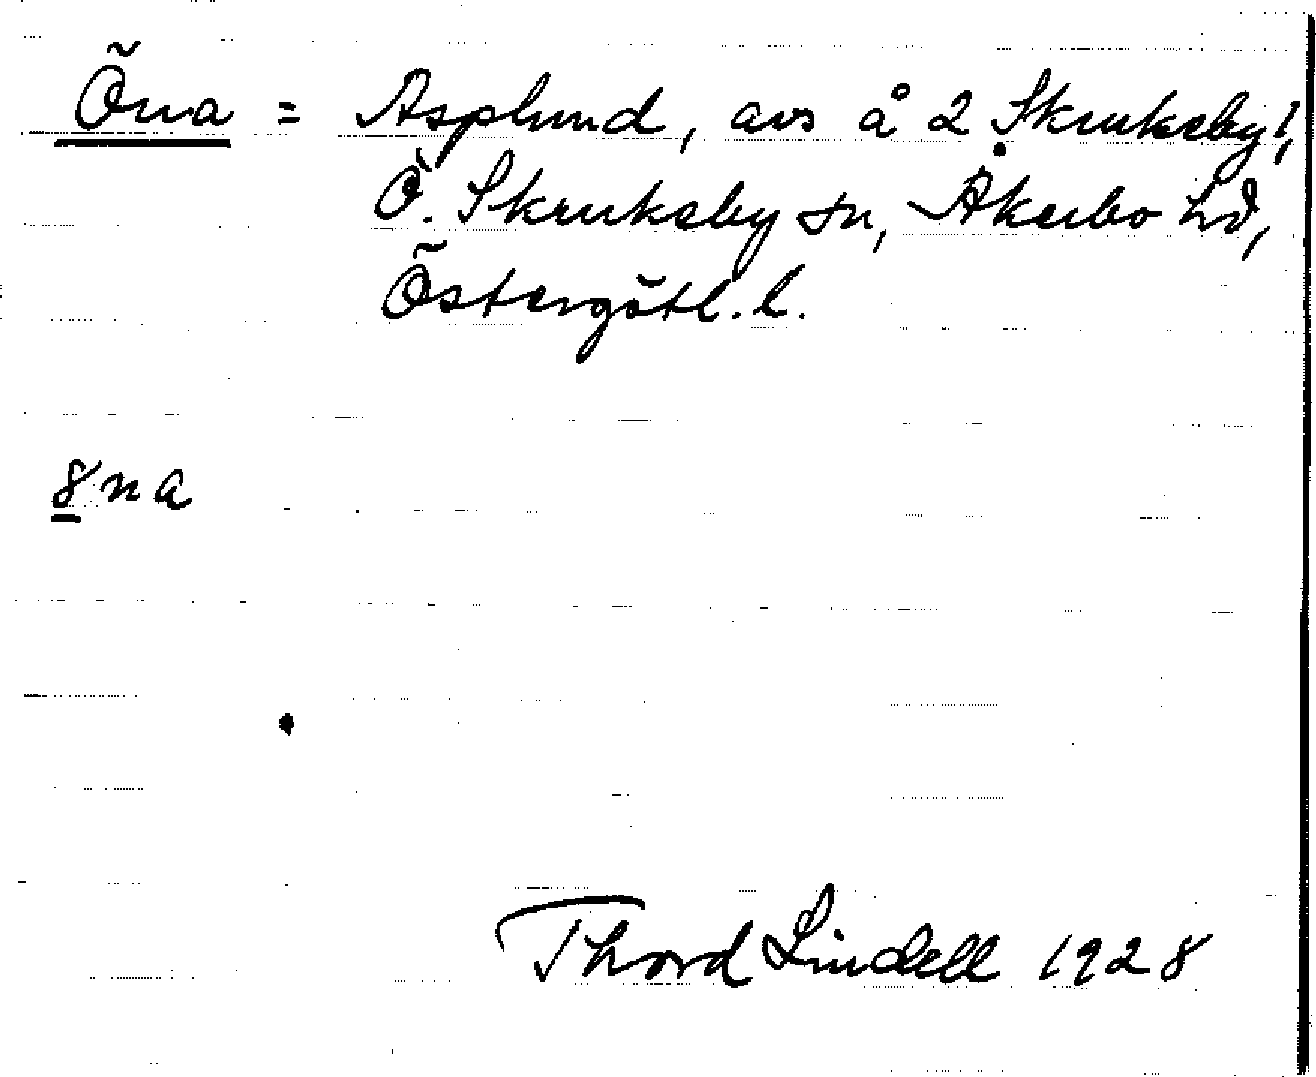 Öna = Asplund, avs å 2 Skruksby!,
Ö. Skruksby sn, Åkerbo hd,
Östergötl. l.
8na
Thord Lindell 1928